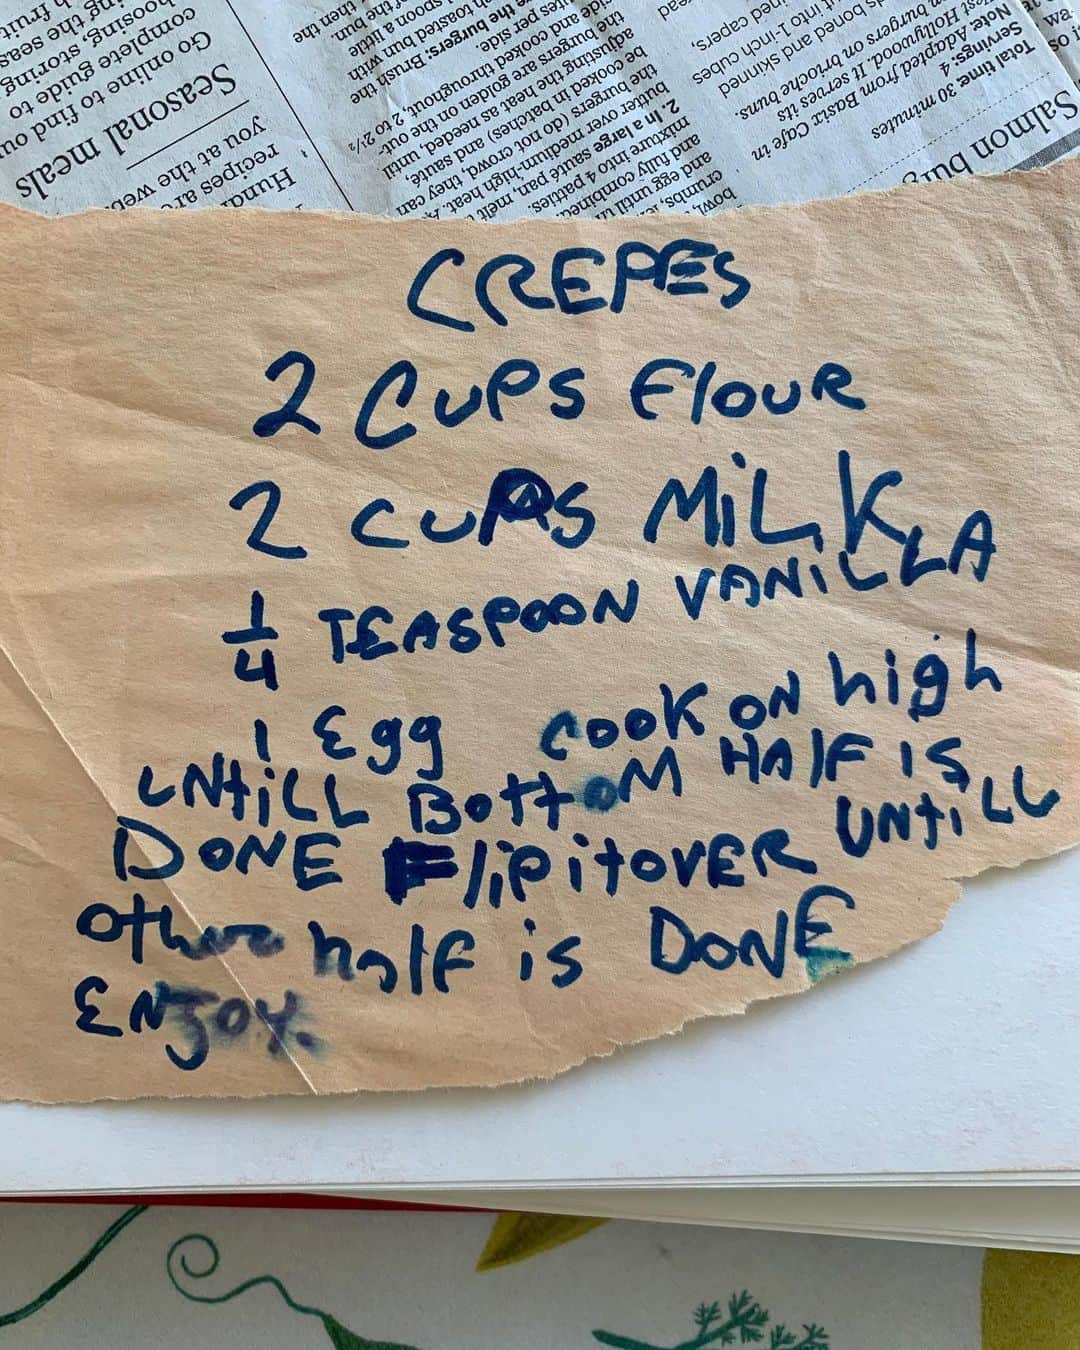 CREPES
2 CUPS FlOUR
2 CUPS MiLK
1/4 TEASPOON VANiLLA
1 Egg COOK ON high
UNtiLL BOttOM HAlF IS
DONE FlipitOVER UNtiLL
Other half is DONE
ENJOY.
Salmon bur
Total time: 30 minutes
Servings: 4
Note: Adapted from Basix Cafe in
est Hollywood. It serves its
n burgers on brioche buns.
boned and skinned
ut into 1-inch cubes
ined capers,
ead
bowl,
crumbs,
and egg until
and fully combine
mixture into 4 patties.
2. In a large sauté pan, melt
butter over medium-high heat. A
burgers (do not crowd, they can
be cooked in batches) and sauté,
adjusting the heat as needed, until
the burgers are golden on the out-
side and cooked throughout, 2 to 2½
es per side.
the burgers: Brush the
h toasted bun with
spoon a little
of the bun
then the
Hund
recipes are
you at the web
Seasonal meals
Go online to find ou
complete guide to
hoosing, storing
ing the seas
h fruit